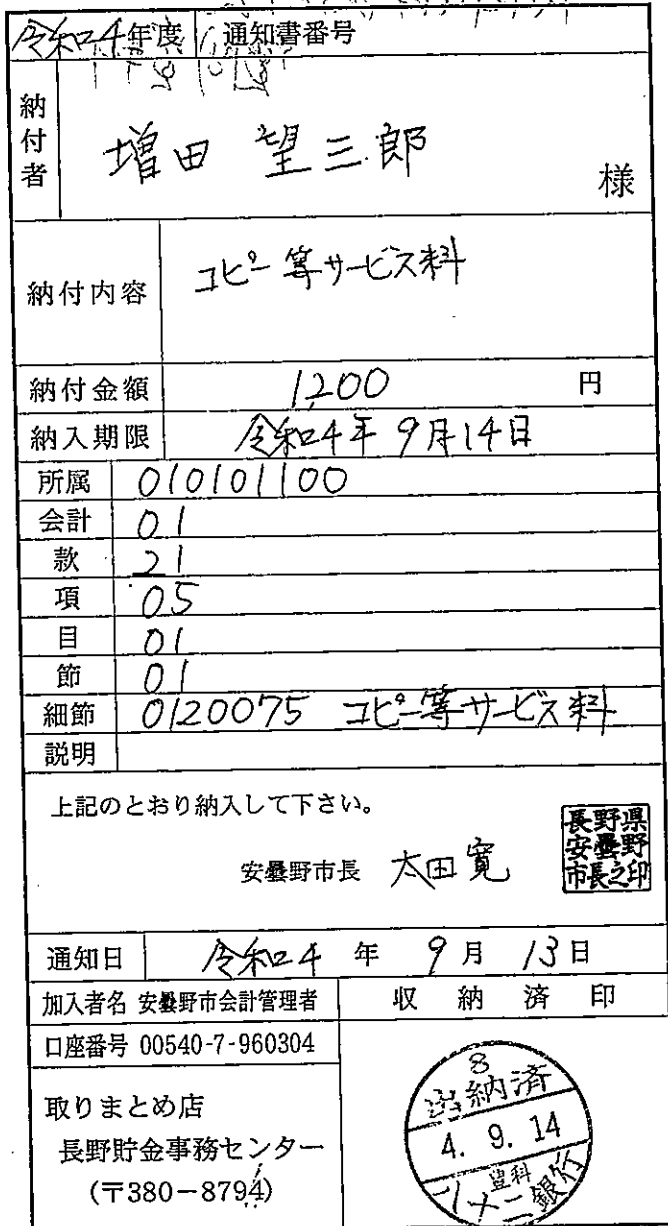 令和4年度 通知書番号
納付者 増田 望三郎 様
納付内容 コピー等サービス料
納付金額 1,200 円
納入期限 令和4年9月14日
所属 010101100
会計 01
款 21
項 05
目 01
節 01
細節 0120075 コピー等サービス料
説明
上記のとおり納入して下さい。
安曇野市長 太田寛
長野県
安曇野
市長之印
通知日 令和4年9月13日
加入者名 安曇野市会計管理者 収納済印
口座番号 00540-7-960304
取りまとめ店
長野貯金事務センター
(〒380-8794)
8
納済
4. 9. 14
豊科
八十二銀行